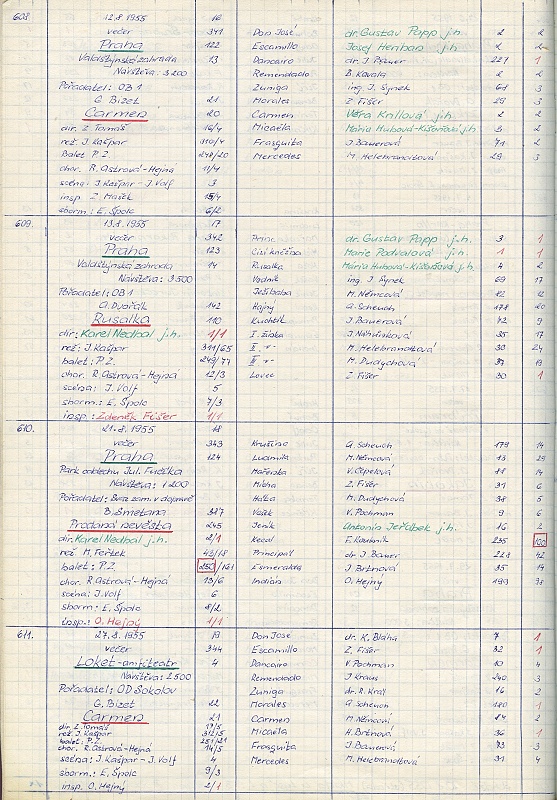 608. 12.8.1955 16 Don José dr. Gustav Papp j.h. 2 2
večer 341 Escamillo Josef Heriban j.h. 2 2
Praha 122 Dancairo dr. J. Pfluer 227 1
Valdštýnská zahrada 13 Remendado B. Kavala 2 2
Návštěva: 3 200 Zuniga ing. J. Synek 61 3
Pořadatel: OB 1 Morales Z. Fišer 29 3
G. Bizet 21 Carmen Věra Knillová j.h. 2 2
Carmen 20 Micaëla Maria Hubová-Kišoňová j.h. 3 2
dir. Z. Tomáš 16/4 Frasquita J. Bauerová 71 2
rež. J. Kašpar 310/4 Mercedes M. Helebrandtová 29 3
Balet P.Z. 248/20
chor. R. Astrová-Hejná 11/4
scéna: J. Kašpar - J. Volf 3
insp. Z. Mašek 15/4
sborm.: E. Špolc 6/2
609. 13.8.1955 17
večer 342 Princ dr. Gustav Papp j.h. 3 1
Praha 123 Cizí kněžna Marie Podvalová j.h. 1 1
Valdštýnská zahrada 14 Rusalka Maria Hubová-Kišoňová j.h. 4 2
Návštěva: 3 500 Vodník ing. J. Synek 69 17
Pořadatel: OB 1 Ježibaba M. Němcová 12 12
A. Dvořák 142 Hajný A. Scheuch 178 20
Rusalka 110 Kuchtík J. Bauerová 72 9
dir: Karel Nedbal j.h. 1/1 I. žínka 35 17
rež: J. Kašpar 311/65 II. -"- M. Helebrandtová 30 24
balet: P.Z. 249/77 III. -"- M. Dudychová 37 19
chor. R. Astrová-Hejná 12/3 Lovec Z. Fišer 30 1
scéna: J. Volf 5
sborm.: E. Špolc 7/3
insp.: Zdeněk Fišer 1/1
610. 21.8.1955 18
večer 343 Krušina A. Scheuch 179 14
Praha 124 Ludmila M. Němcová 13 29
Park oddechu Jul. Fučíka Mařenka V. Čepelová 11 14
Návštěva: 1 200 Mícha Z. Fišer 31 6
Pořadatel: Svaz zam. v dopravě Háta M. Dudychová 38 5
B. Smetana 317 Vašek V. Pachman 9 6
Prodaná nevěsta 245 Jeník Antonín Jeřábek j.h. 16 2
dir. Karel Nedbal j.h. 2/1 Kecal F. Koubník 235 100
rež M. Feřtek 43/18 Principál dr. J. Bauer 228 42
balet: P.Z. 250/161 Esmeralda J. Brtnová 35 14
chor. R. Astrová-Hejná 13/6 Indián O. Hejný 199 38
scéna: J. Volf 6
sborm: E. Špolc 8/2
insp: O. Hejný 1/1
611. 27.8.1955 19 Don José dr. K. Blaha 7 1
večer 344 Escamillo Z. Fišer 32 1
Loket-amfiteatr 4 Dancairo V. Pachman 10 4
Návštěva: 2 500 Remendado J. Kraus 240 3
Pořadatel: OD Sokolov Zuniga dr. R. Král 16 2
G. Bizet 22 Morales A. Scheuch 180 1
Carmen 21 Carmen M. Němcová 14 2
dir. Z. Tomáš 17/5 Micaëla H. Brtnová 36 1
rež. J. Kašpar 312/5 Frasquita J. Bauerová 73 3
balet: P.Z. 251/21 Mercedes M. Helebrandtová 31 4
chor. R. Astrová-Hejná 14/5
scéna: J. Kašpar - J. Volf 4
sborm: E. Špolc 9/3
insp. O. Hejný 2/1